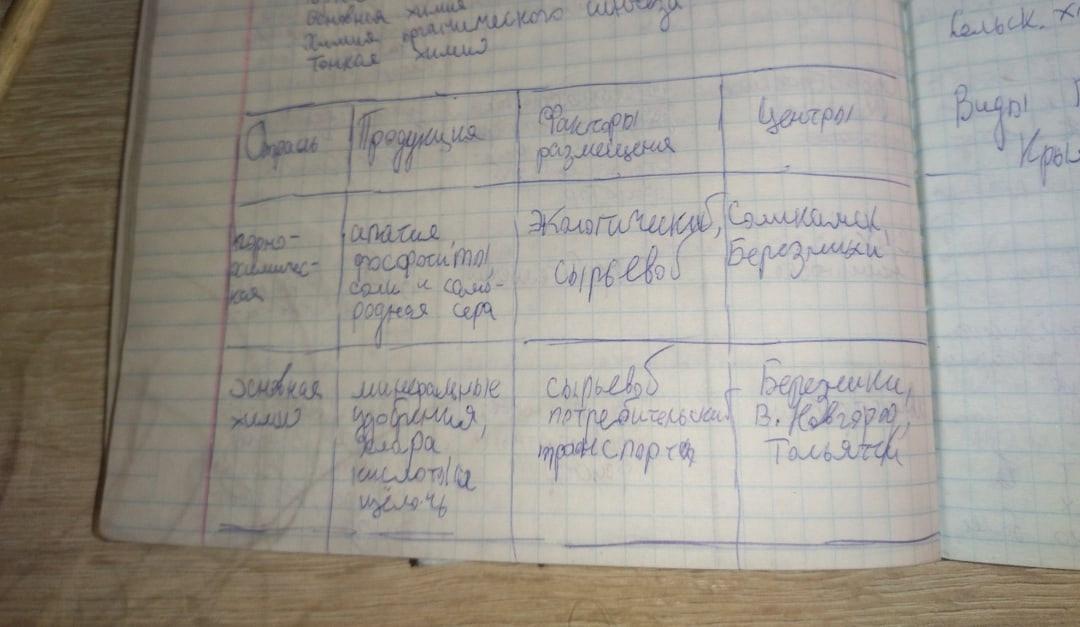 Основная химия
Химия органического синтеза
Тонкая химия
Отрасль
Продукция
Факторы
размещения
Центры
горно-
химичес-
кая
апатия,
фосфориты,
соли и само-
родная сера
Экологический,
сырьевой
Соликамск,
Березники
основная
химия
минеральные
удобрения,
хлора
кислоты и
щёлочь
сырьевой
потребительский
транспортн
Березники,
В. Новгород,
Тольятти
сельск. х
Виды
Кры